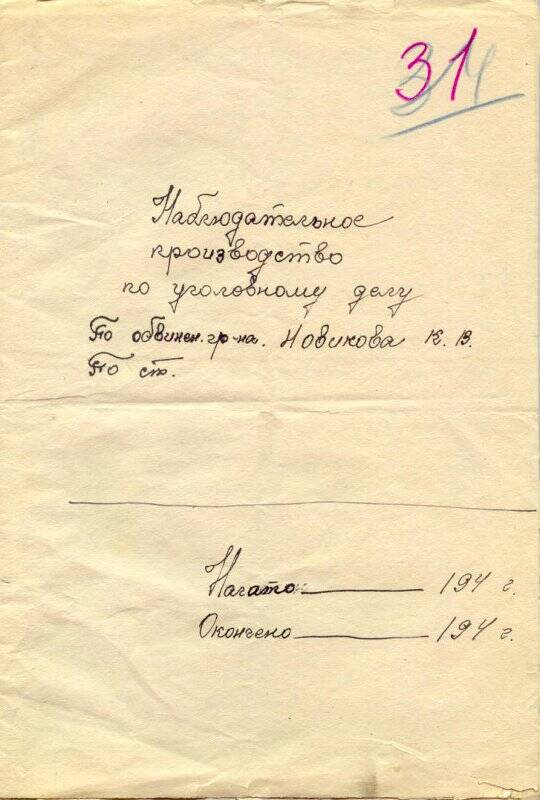 31
Наблюдательное
производство
по уголовному делу
По обвинен. гр-на. Новикова К. В.
По ст.
Начато: 194 г.
Окончено 194 г.